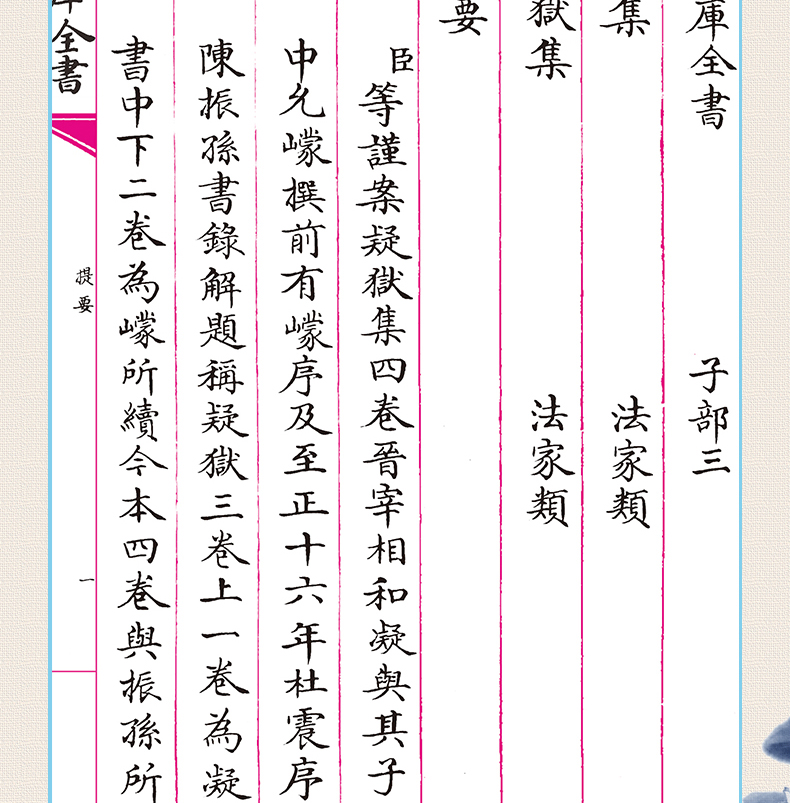 庫全書 子部三
集 法家類
獄集 法家類
要
臣等謹案疑獄集四卷晉宰相和凝與其子
中允㠓撰前有㠓序及至正十六年杜震序
陳振孫書錄解題稱疑獄三卷上一卷為凝
書中下二卷為㠓所續今本四卷與振孫所
庫全書
提要
一